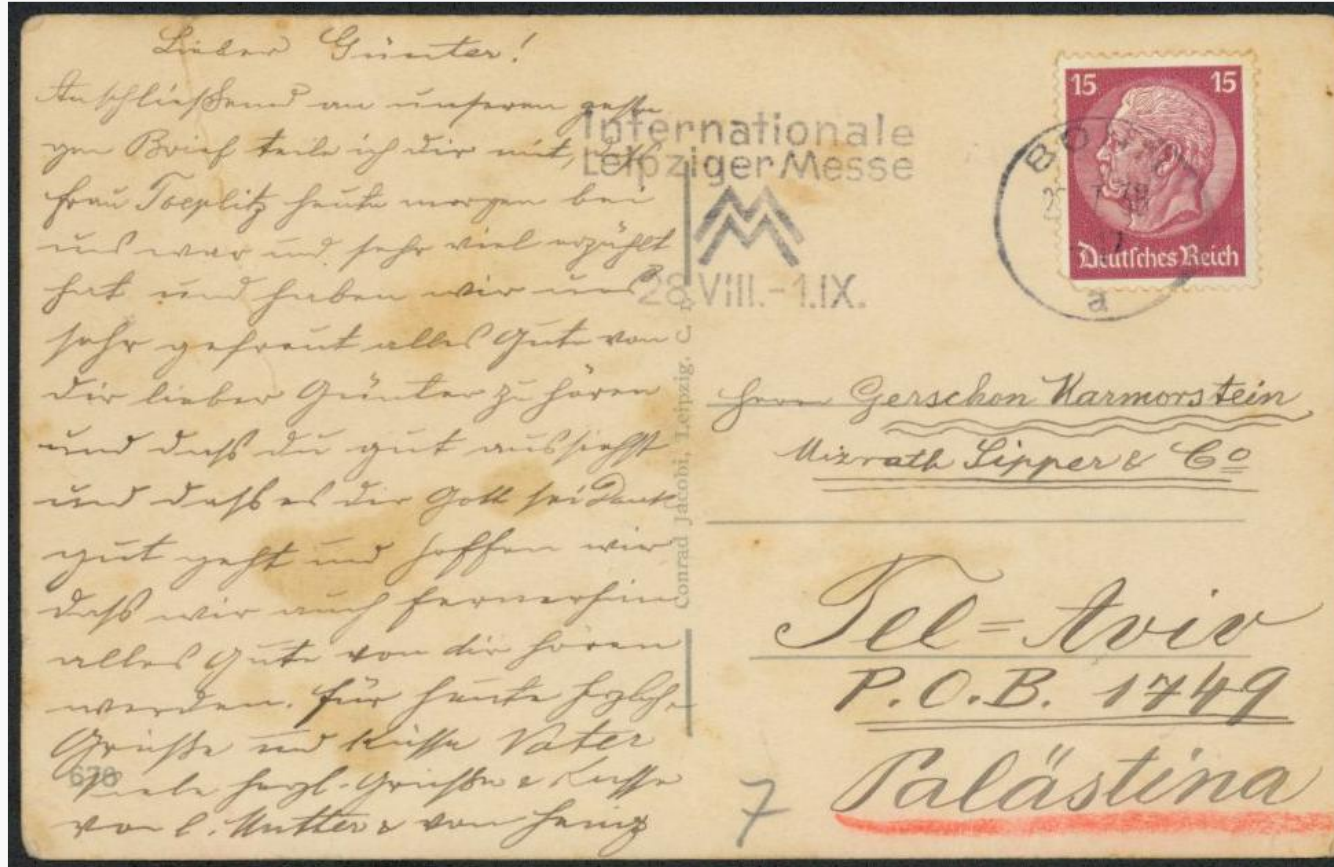 Lieber Günter!
Anschließend an unseren gestri-
gen Brief teile ich dir mit, daß
Frau Toeplitz heute morgen bei
uns war und sehr viel erzählt
hat und haben wir uns
sehr gefreut alles Gute von
dir lieber Günter zu hören
und daß du gut aussiehst
und daß es dir Gott sei Dank
gut geht und hoffen wir
daß wir auch fernerhin
alles Gute von dir hören
werden. Für heute herzlich.
Grüße und Küsse Vater
Viele herzl. Grüße & Küsse
von l. Mutter & von Heinz
678
Conrad Jacobi, Leipzig, C. 1.
Internationale
Leipziger Messe
28.VIII.-1.IX.
15 15
Deutsches Reich
BONN
a
Herrn Gerschon Karmorstein
Mizrath Lipper & Co
Tel=Aviv
P.O.B. 1749
Palästina
7